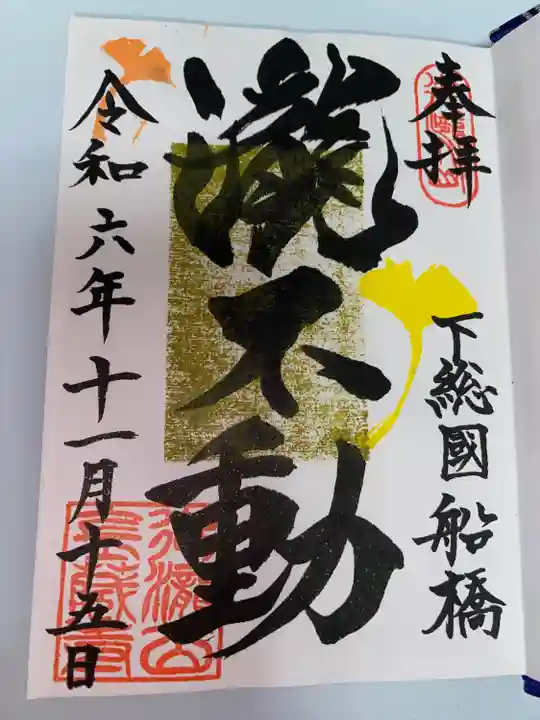 奉拝
下総國船橋
瀧不動
令和六年十一月十五日